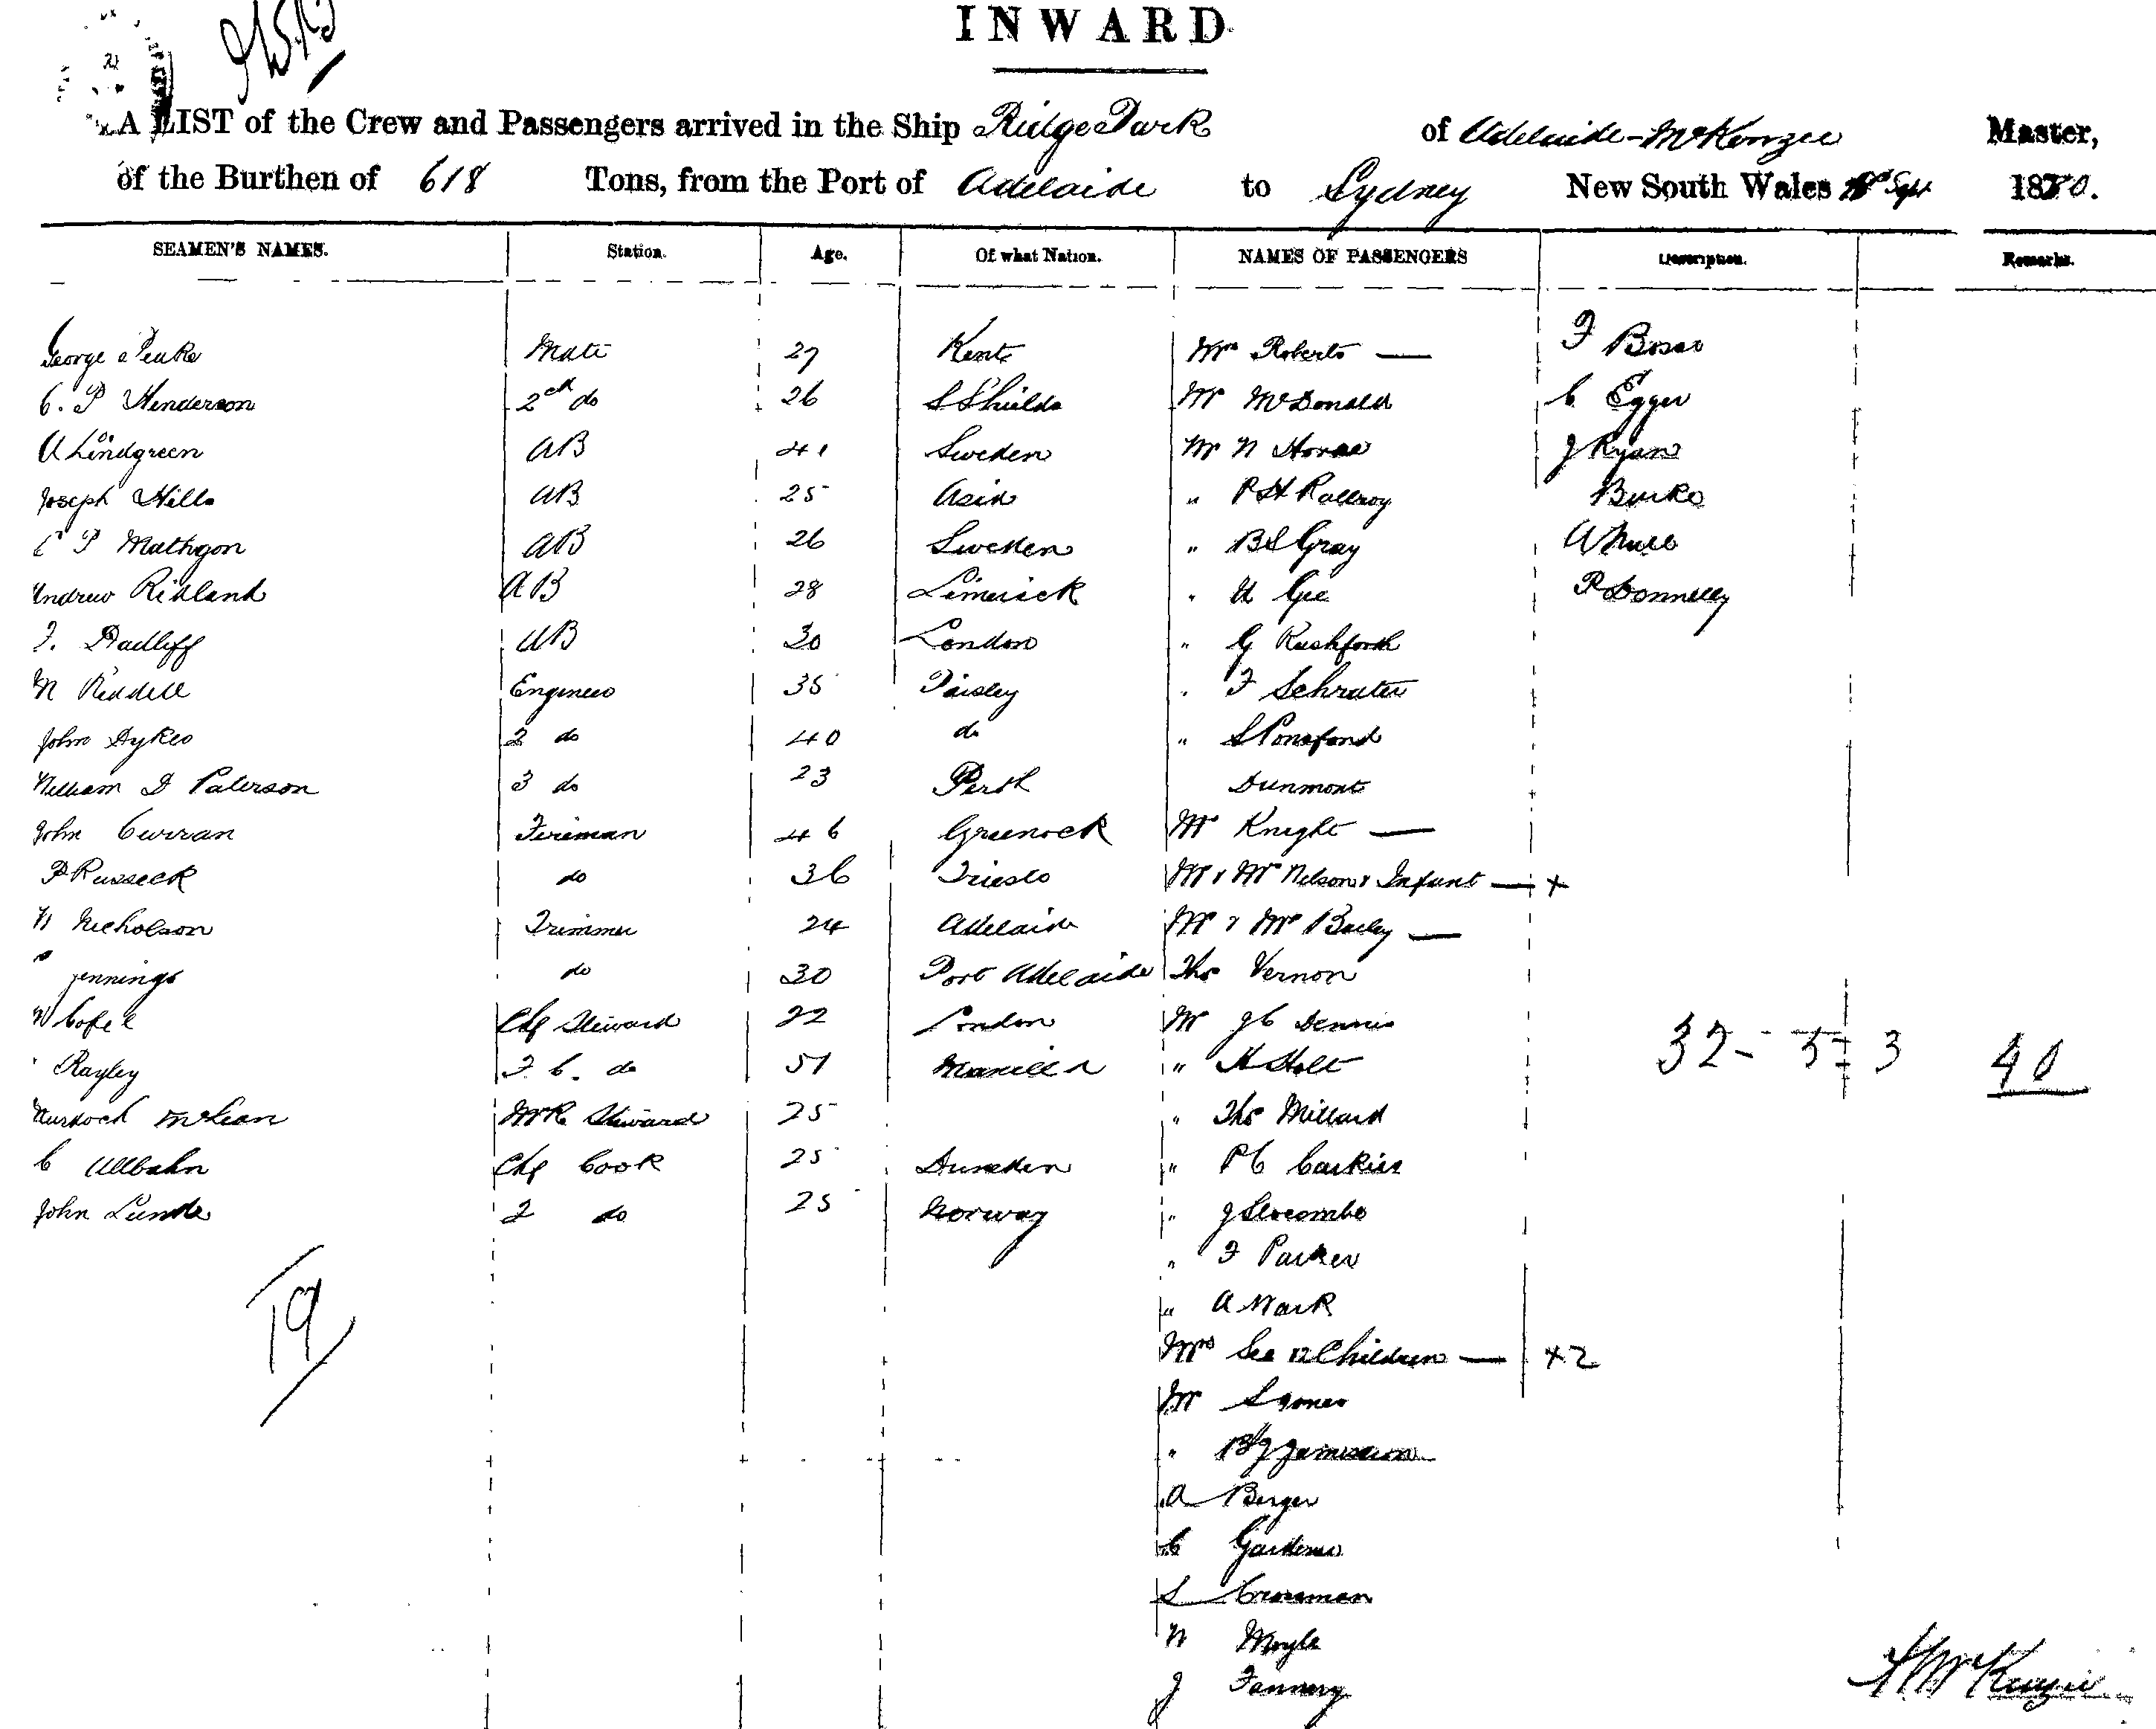 INWARD.
A LIST of the Crew and Passengers arrived in the Ship Ridge Park of Adelaide - McKenzie Master,
of the Burthen of 618 Tons, from the Port of Adelaide to Sydney New South Wales Sept 1880.
SEAMEN'S NAMES. Station. Age. Of what Nation. NAMES OF PASSENGERS Description. Remarks.
George Peake Mate 27 Kent Mrs Roberts — F
C. P Henderson 2nd do 26 S Shields Mr McDonald C Egger
A Lindgreen AB 41 Sweden Mr N Horne J Ryan
Joseph Hills AB 25 Asia " P H Burke
C P Mathgon AB 26 Sweden " B S Gray A
Andrew Ridland AB 28 Limerick " Gee P Donnelly
J. Radliff AB 30 London " G Rushforth
Riddell Engineer 35 Paisley " F Schrater
John Dykes 2 do 40 do " S Ponsford
William D Paterson 3 do 23 Perth Dunmont
John Curran Fireman 46 Greenock Mr Knight —
P Russeck do 36 Mr & Mrs Nelson & Infant — +
Nicholson Trimmer 24 Adelaide Mr & Mrs Bailey —
Jennings do 30 Port Adelaide Thos Vernon
Chf Steward 22 London Mr J C Dennis
Rayley F. C. do 51 Manilla " H Holt
Murdoch McLean Steward 25 " Thos Millard
C Allbahn Chf Cook 25 Dunedin " P C
John Lunde 2 do 25 Norway " J Slocombe
" F Parker
" A Wark
Mrs Lee & 2 Children — + 2
Mr S Jones
" Jamieson
A Berger
C Gardener
S Crossman
Moyle
J Fannery
19
32 - 5 - 3 40
McKenzie